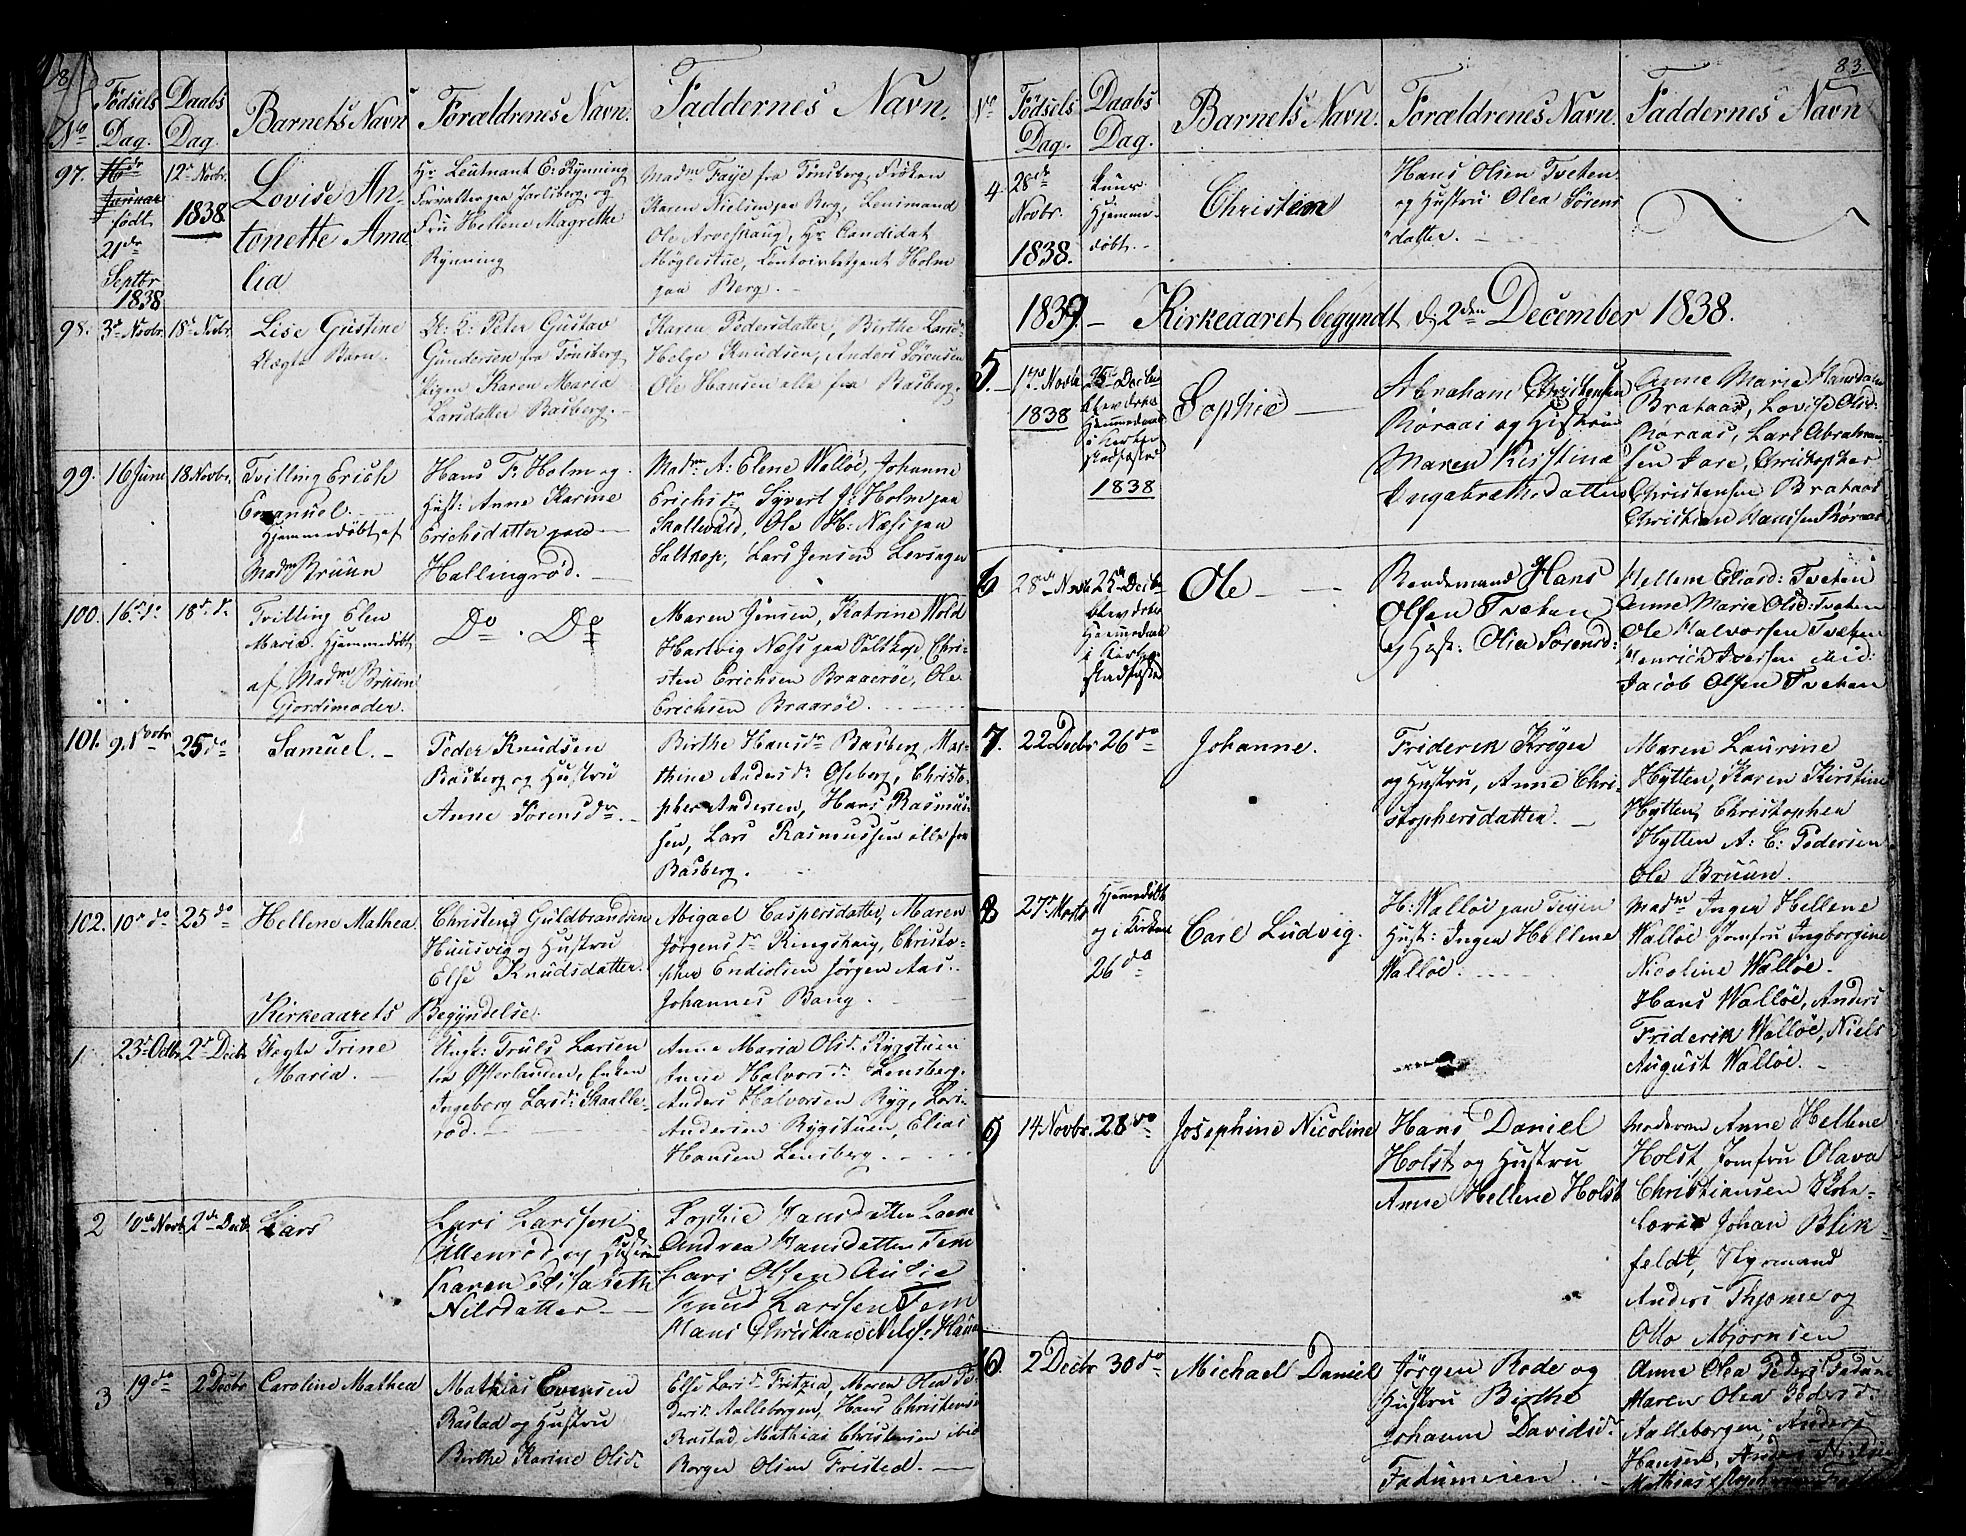 8
No
Fødsels Dag.
Daabs Dag.
Barnets Navn
Forældrenes Navn.
Faddernes Navn.
97.
16de Januar
født
21de
Septbr
1838
12te Novbr.
1838
Lovise An-
tonette Ama
lia
Hr Leutnant E: Rynning
Forvalter paa Jarlsberg og
Fru Hellene Magrethe
Rynning
Madm Faye fra Tønsberg, Frøken
Karen Nielsen paa Berg, Lensmand
Ole Arveschaug, Hr Candidat
Møglestue, Contoirbetjent Holm
paa Berg.
98.
3de Novbr.
18de Novbr.
Lise Gustine
Uægte Barn.
U: K: Peter Gustav
Gundersen fra Tønsberg
Pigen Karen Maria
Larsdatter Basberg.
Karen Pedersdatter, Birthe Larsd:
Helge Knudsen, Anders Sørensen
Ole Hansen alle fra Basberg.
99.
16 Juni
18 Novbr.
Tvilling Erich
Emanuel.
Hjemmedøbt af
Madm Bruun
Hans Fr: Holm og
Hust: Anne Karine
Erichsdatter paa
Hallingrød.
Madm A: Elene Walløe, Johanne
Erichsdr Syvert J: Holm paa
Skallevald, Ole H: Næss paa
Saltkop, Lars Jensen Levsager
100.
16de do
18de do
Tvilling Elen
Maria. Hjemmedøbt
af Madm Bruun
Gjordemoder.
Do . Do
Maren Jensen, Katrine Wold
Hartvig Næss paa Saltkop, Chri-
sten Erichsen Braarøe, Ole
Erichsen Braarøe.
101.
9. Novbr
25 do
Samuel.
Peder Knudsen
Basberg og Hustru
Anne Sørensdr.
Birthe Hansdr Basberg, Ma-
thine Andersdr Oseberg, Christo-
pher Andersen, Hans Rasmus-
sen, Lars Rasmussen alle fra
Basberg.
102.
10de do
25 do
Hellene Mathea
Christen Guldbrandsen
Huusvig og Hustru
Else Knudsdatter.
Abigael Caspersdatter, Maren
Jørgensdr Ringshaug, Christo-
pher Endiolsen Jørgen Aas.
Johannes Bang.
Kirkeaarets Begyndelse.
1.
23de Octbr
2de Decbr
Uægte Trine
Maria.
Ungk: Truls Larsen
fra Østerlanden, Enken
Ingeborg Larsd: Skaalle-
rød.
Anne Maria Olsdr Rygstuen
Anne Halvorsdr Lensberg.
Anders Halvorsen Ryg, Lars
Andersen Rygstuen, Elias
Hansen Lensberg.
2
10de Novb
2de Decbr
Lars
Lars Larssen
Ellenrød og Hustrue
Karen Elisabeth
Nilsdatter
Sophie Hansdatter Laem
Andrea Hansdatter Fem
Lars Olsen Aulie
Knud Larssen Fem
Hans Christian Nilss: Haua
3
19 do
2 Decbr
Caroline Mathea
Mathias Evensen
Rastad og Hustru
Birthe Karine Olsdr
Else Larsdr Fritzia, Maren Olea Pe-
dersdr Aalleborgen, Hans Christensen
Rastad, Mathias Christensen ibid
Borger Olsen Fristed.
83.
No
Fødsels Dag.
Daabs Dag.
Barnets Navn.
Forældrenes Navn.
Faddernes Navn
4
28de
Novbr.
1838.
kuns
Hjemme-
døbt.
Christen
Hans Olsen Tveten
og Hustru Olea Sørens
datter.
1839 - Kirkeaaret begyndt d: 2den December 1838.
5.
17de Novbr
1838
25de Decbr
blev dets
Hjemmedaab
i Kirken
stadfæstet
1838
Sophie
Abraham Christensen
Røraas og Hustrue
Maren Kirstina
Ingebretsdatter
Anne Marie Hansdatter
Brataas, Lovise Olsd:
Røraas, Lars Abraham-
sen Jare, Christopher
Christensen Brataas
Christian Hanssen Røraas
6
28de Novb
25de Decbr
blev dets
Hjemmedaab
i Kirken
stadfæstet
Ole
Bondemand Hans
Olsen Tveten
og Hust: Olea Sørensd:
Hellene Eliasd: Tveten
Anne Marie Olsd: Tveten
Ole Halvorsen Tveten
Henrich Iversen Mid:
Jacob Olsen Tveten
7.
22 Decbr
26 do
Johanne.
Friderik Krøger
og Hustru, Anne Chri-
stophersdatter.
Maren Laurine
Hytten, Karen Kirstine
Hytten, Christopher
Hytten A: C: Pedersen
Ole Bruun.
8
27de Marts
Hjemmedøbt
og i Kirken
26 do
Carl Ludvig.
H: Walløe paa Teien
Hust: Inger Hellene
Walløe.
Madm Inger Hellene
Walløe Jomfru Ingborgine
Nicoline Walløe.
Hans Walløe, Anders
Friderik Walløe, Niels
August Walløe.
9
14 Novbr.
28 do
Josephine Nicoline
Hans Daniel
Holst og Hustru
Anne Hellene Holst
Moderen Anne Hellene
Holst Jomfru Olava
Christiansen
Johan Blik-
feldt, Styrmand
Anders Thjøme og
Otto Abjørnsen
10.
2 Decbr
30 do
Michael Daniel
Jørgen Rode og
Hustru Birthe
Johanne Davidsdr
Fadumeien.
Anne Olea Pedersd Fadum
Maren Olea Pedersdr
Aalleborgen, Anders
Hansen, Anders Nielsen
Mathias